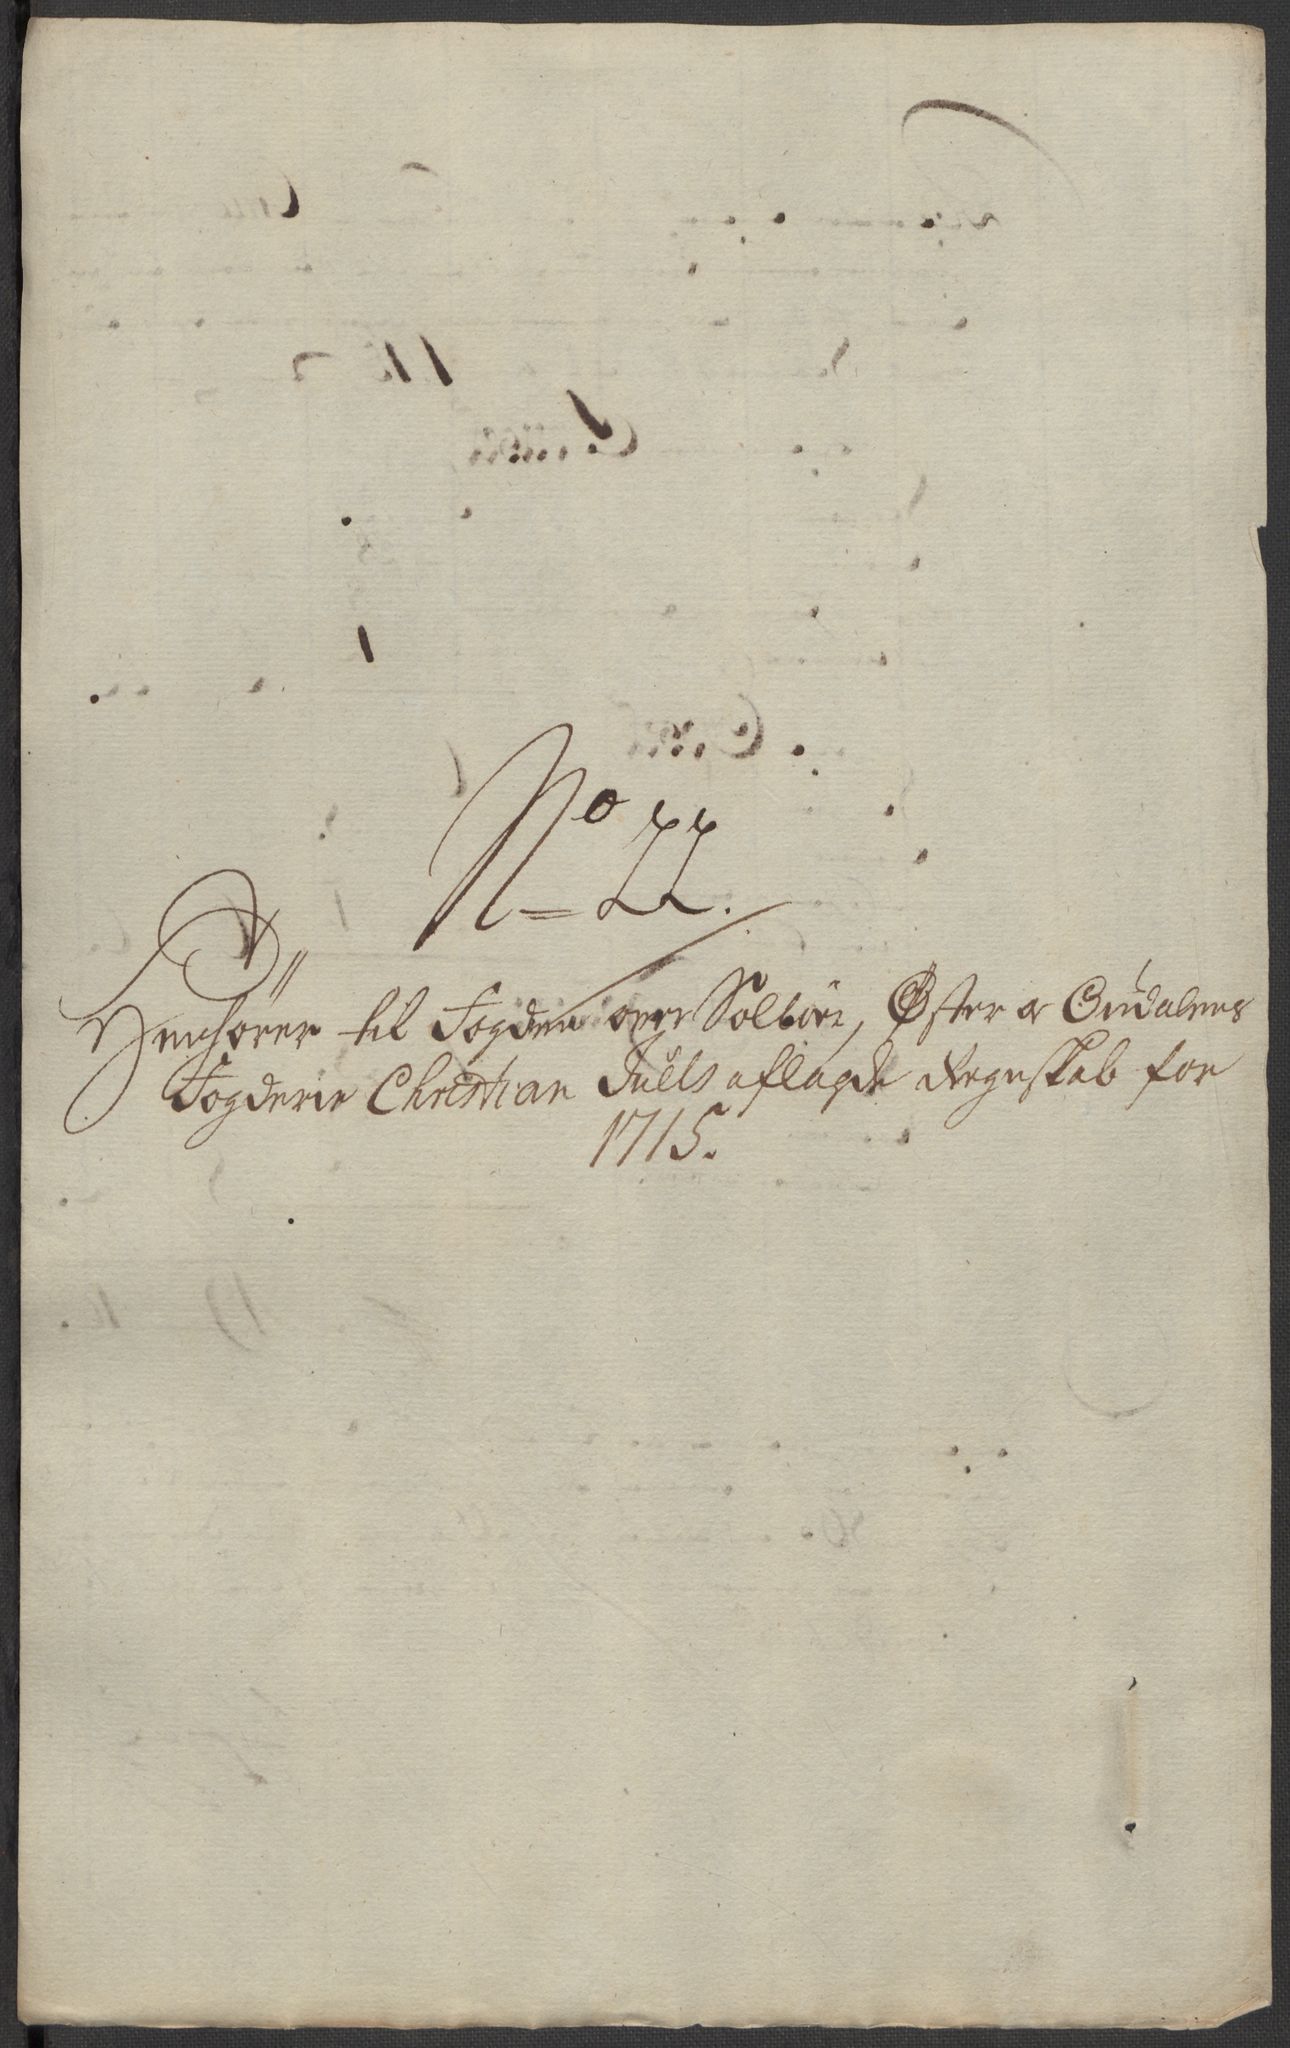 No 22.
Henhører til Fogden over Solløer, Øster og Oudalens
Fogderie Christian Juells aflagde Regnskab for
1715.